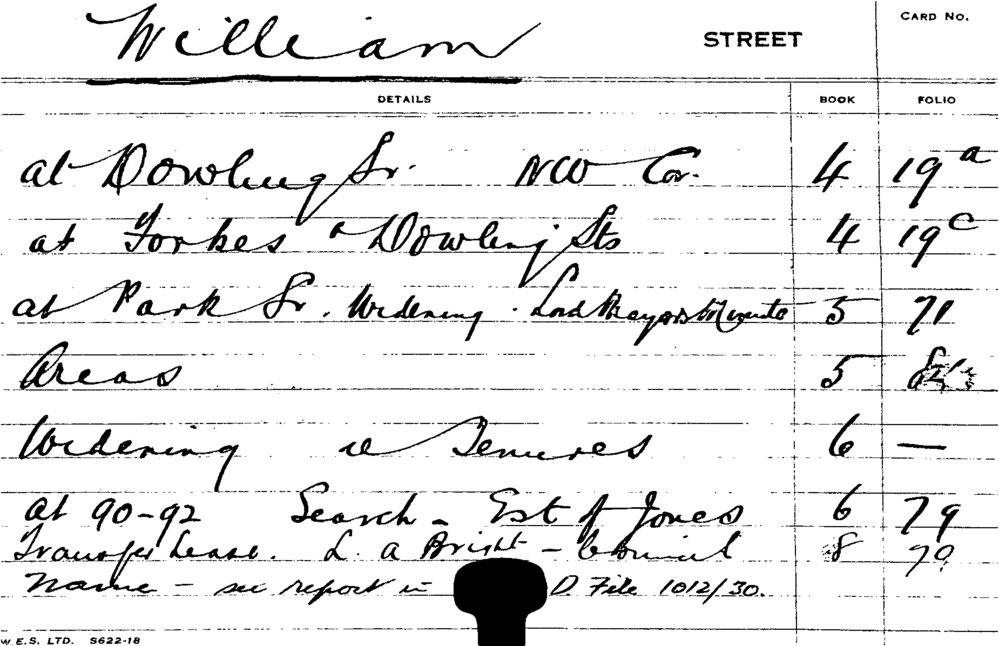 William STREET CARD No.
DETAILS BOOK FOLIO
at Dowling St. NW Cor. 4 19a
at Forbes & Dowling Sts 4 19c
at Park St. Widening. Lord Mayors Minute 5 71
Areas 5
Widening re Tenures 6 —
at 90-92 Search - Est of Jones 6 79
Transfer Lease. L. A Bright - Council 8 79
Name - see report in D File 1012/30.
W.E.S. LTD. S622-18